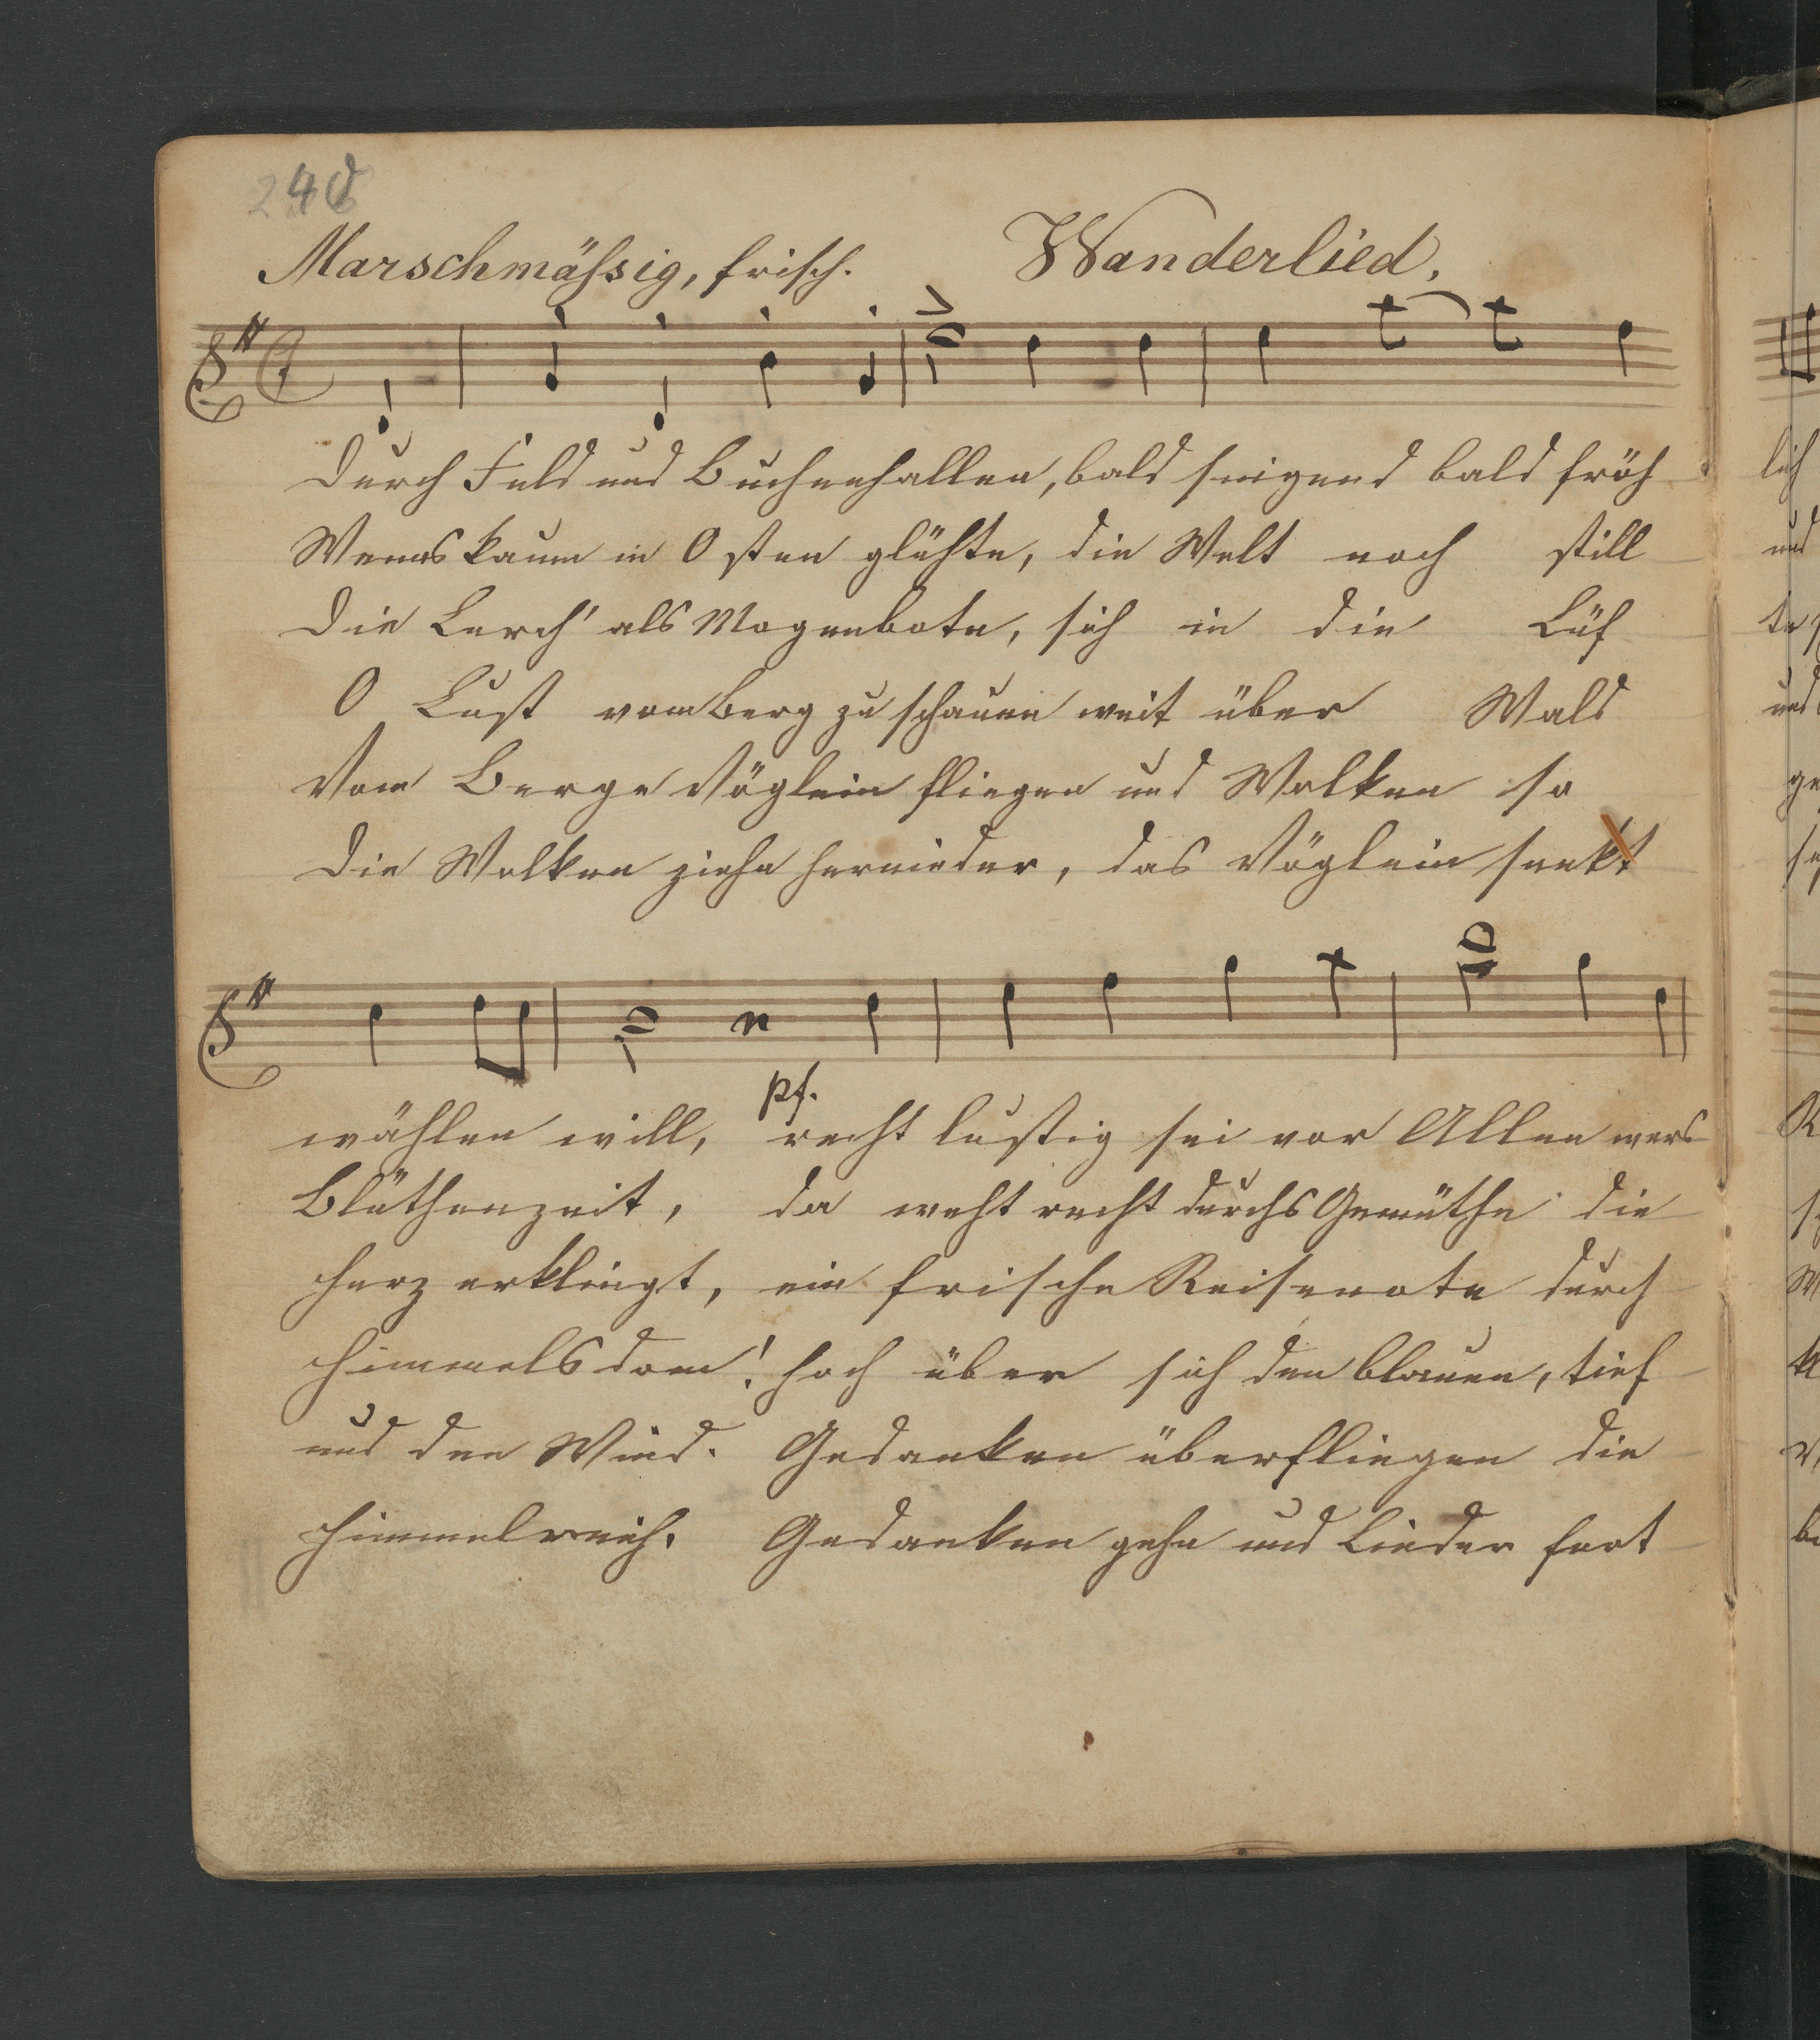 Marschmäßsig, frisch. Wanderlied.
Durch Feld und Buchenhallen, bald singend bald fröh lich
Wenns kaum in Osten glühte, die Welt noch still und
Die Lerch' als Mogenbote, sich in die Lüf te
O Lust vom Berg zu schauen weit über Wald und
Vom Berge Vöglein fliegen und Wolken so ge
Die Wolken ziehn hernieder, das Vöglein senkt
pf.
wählen will, recht lustig sei vor Allen wers
Blüthenzeit, da weht recht durchs Gemüthe die
Herz erklingt, ein frische Reisenote durch
Himmelsdom! hoch über sich den blauen, tief
und den Wind. Gedanken überfliegen die
Himmelreich. Gedanken gehn und Lieder fort